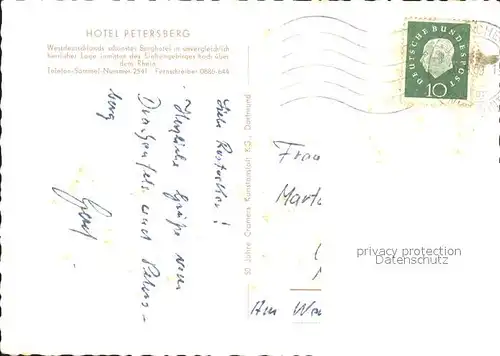 HOTEL PETERSBERG
Westdeutschlands schönstes Berghotel in unvergleichlich
herrlicher Lage inmitten des Siebengebirges hoch über
dem Rhein
Telefon-Sammel-Nummer 2541 Fernschreiber 0885-644
Herzliche Grüße vom
Drachenfels und Peters-
berg
Gerd
50 Jahre Cramers Kunstanstalt KG., Dortmund
DEUTSCHE BUNDESPOST
10
Frau
Marta
Am
privacy protection
Datenschutz